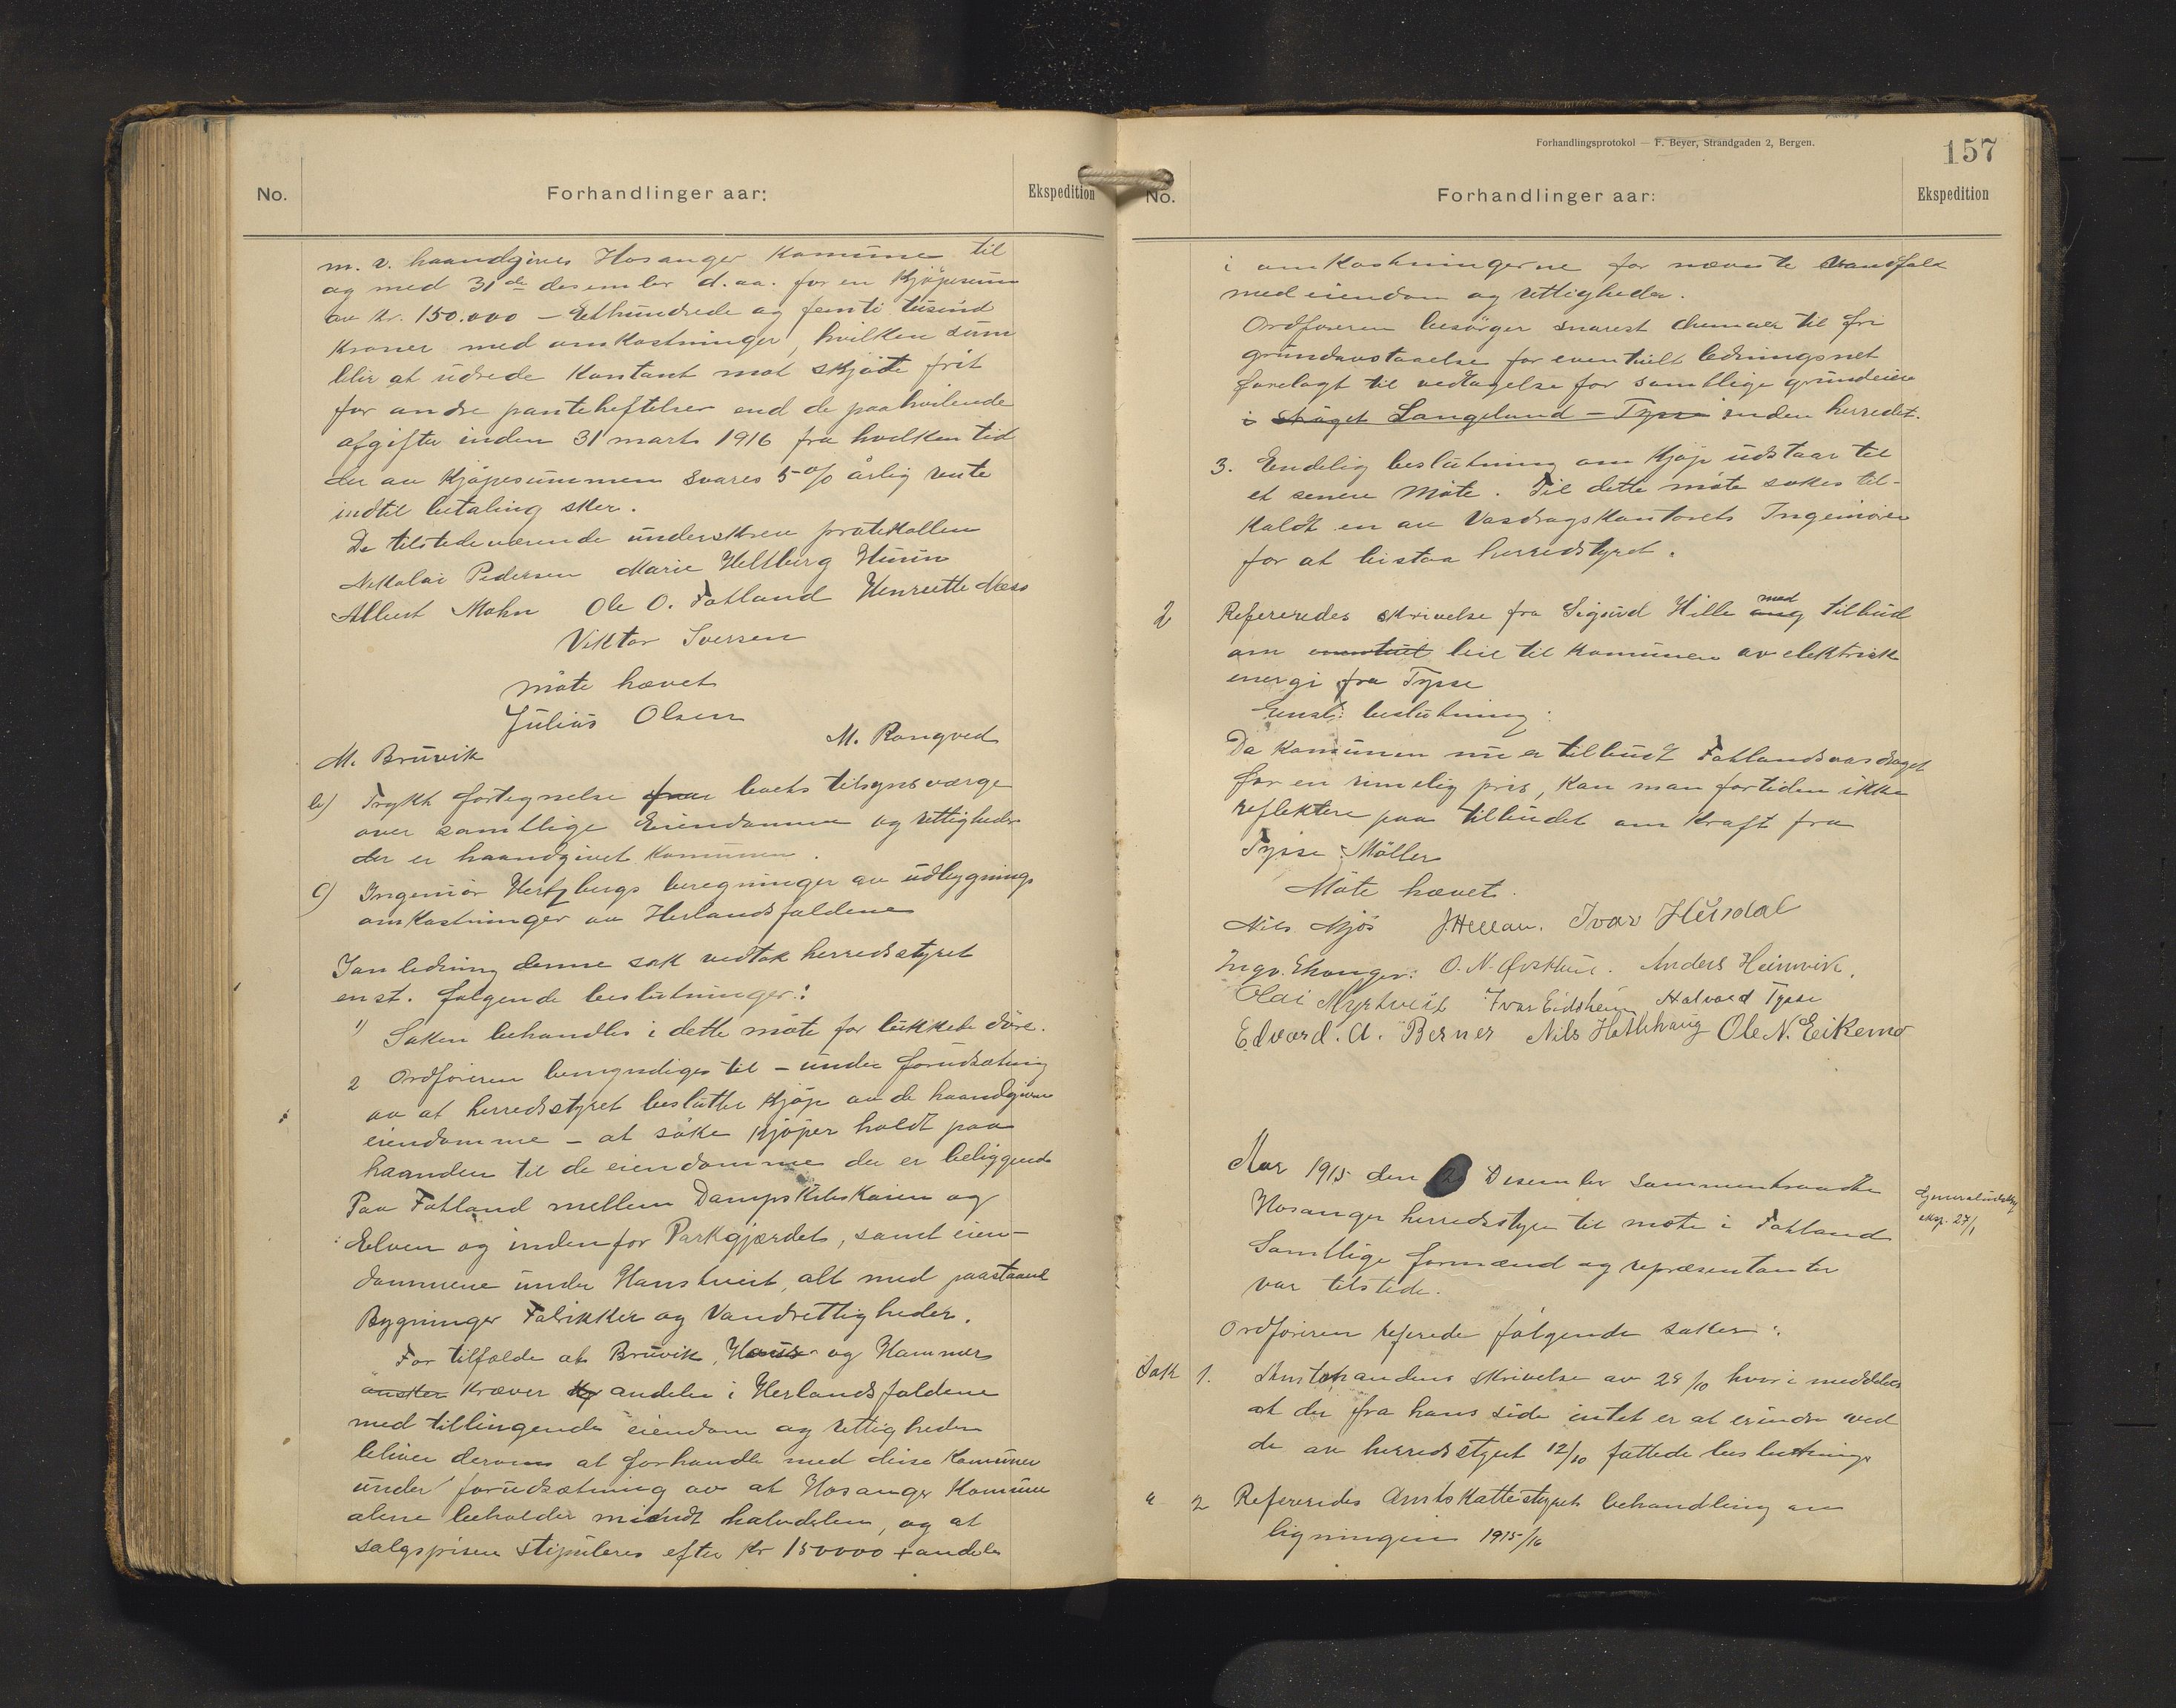 No.
Forhandlinger aar:
Ekspedition
m. v. haandgives Hosanger Komune til
og med 31 de desember d. aa. for en Kjøpesum
av Kr. 150.000 – Ethundrede og femti tusind
Kroner med omkostninger, hvilken sum
blir at udrede Kontant mot skjøte frit
for andre panteheftelser end de paahvilende
afgifter inden 31 marts 1916 fra hvilken tid
der av Kjøpesummen svares 5 % årlig rente
indtil betaling sker.
De tilstedeværende underskrev protokollen
Nikolai Pedersen Marie Heltberg Hunn
Albert Mohn Ole O. Fotland Henriette Mess
Viktor Iversen
møte hævet
Julius Olsen
M. Bruvik
M. Rongved
b) Trykt fortegnelse fra boets tilsynsværge
over samtlige Eiendomme og rettigheder
der er haandgivet Komunen.
c) Ingeniør Hertzbergs beregninger av udbygnings
omkostninger av Herlandsfaldene
I anledning denne sak vedtok herredsstyret
enst. følgende beslutninger:
1) Saken behandles i dette møte for lukkede døre.
2 Ordføreren bemyndiges til – under forudsætning
av at herredsstyret beslutter Kjøp av de haandgivne
eiendomme – at søke Kjøper holdt paa
haanden til de eiendomme der er beliggende
Paa Fotland mellem Dampskibskaien og
Elven og indenfor Parkgjærdet, samt eien-
dommene under Hanstveit, alt med paastaaende
Bygninger Fabrikker og Vandrettigheder.
For tilfælde at Bruvik, Haus og Hammer
ønsker Kræver Kj andeler i Herlandsfaldene
med tilliggende eiendom og rettigheder
bliver derom at forhandle med disse Komuner
under forudsætning av at Hosanger Komune
alene beholder mindst halvdelen, og at
salgsprisen stipuleres efter Kr 150000 + andeler
Forhandlingsprotokol — F. Beyer, Strandgaden 2, Bergen.
157
No.
Forhandlinger aar:
Ekspedition
i omkostningerne for nævnte vandfald
med eiendom og rettigheder.
Ordføreren besørger snarest chemaer til fri
grundavstaaelse for eventuelt ledningsnet
forelagt til vedtagelse for samtlige grundeiere
i strøget Langelund – Tysse inden herredet.
3. Endelig beslutning om Kjøp udstaar til
et senere Møte. Til dette møte søkes til-
Kaldt en av Vasdragskontorets Ingeniører
for at bistaa herredstyret.
2 Refereredes skrivelse fra Sigurd Hille med ang tilbud
om eventuel leie til Komunen av elektrisk
energi fra Tysse
Enst: beslutning:
Da Komunen nu er tilbudt Fotlandsvasdraget
for en rimelig pris, Kan man for tiden ikke
reflektere paa tilbudet om Kraft fra
Tysse Møller
Møte hævet.
Nils Mjøs J Hellan. Ivar Hersdal
Ingv. Ekanger: O. N. Øvsthus. Anders Heimvik.
Olai Myrtveit Ivar Eidsheim Halvard Tysse
Edvard. A. Berner Nils Hatlehaug Ole N. Eikemo
Aar 1915 den 2 Desember sammentraadte
Hosanger herredsstyre til møte i Fotland
Samtlige formænd og repræsentanter
var tilstede.
Generalutskr.
eksp. 27/1
Ordføreren refererede følgende saker:
Sak 1. Amtmandens skrivelse av 29/10 hvori meddeles
at der fra hans side intet er at erindre ved
de av herredsstyret 12/10 fattede beslutninge
" 2 Refereredes Amtskattestyrets behandling av
ligningen 1915/16